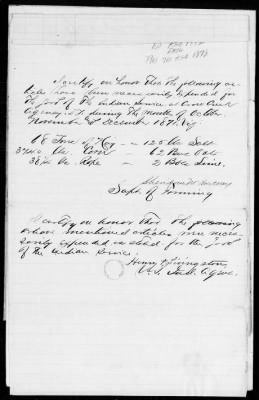 I certify on honor that the foregoing ar-
ticles have been necessarily expended for
the good of the Indian Service at Crow Creek
Agency D.T. during the months of October
November & December 1878 viz
68 Tons Hay — 125 lbs Salt
lbs Corn — 62 Bus Oats
lbs Rope 2 Bbls Lime
Supt of Farming
I certify on honor that the foregoing
above mentioned articles were neces-
sarily expended as stated for the good
of the Indian Service.
Henry F Livingston
U.S. Ind. Agent